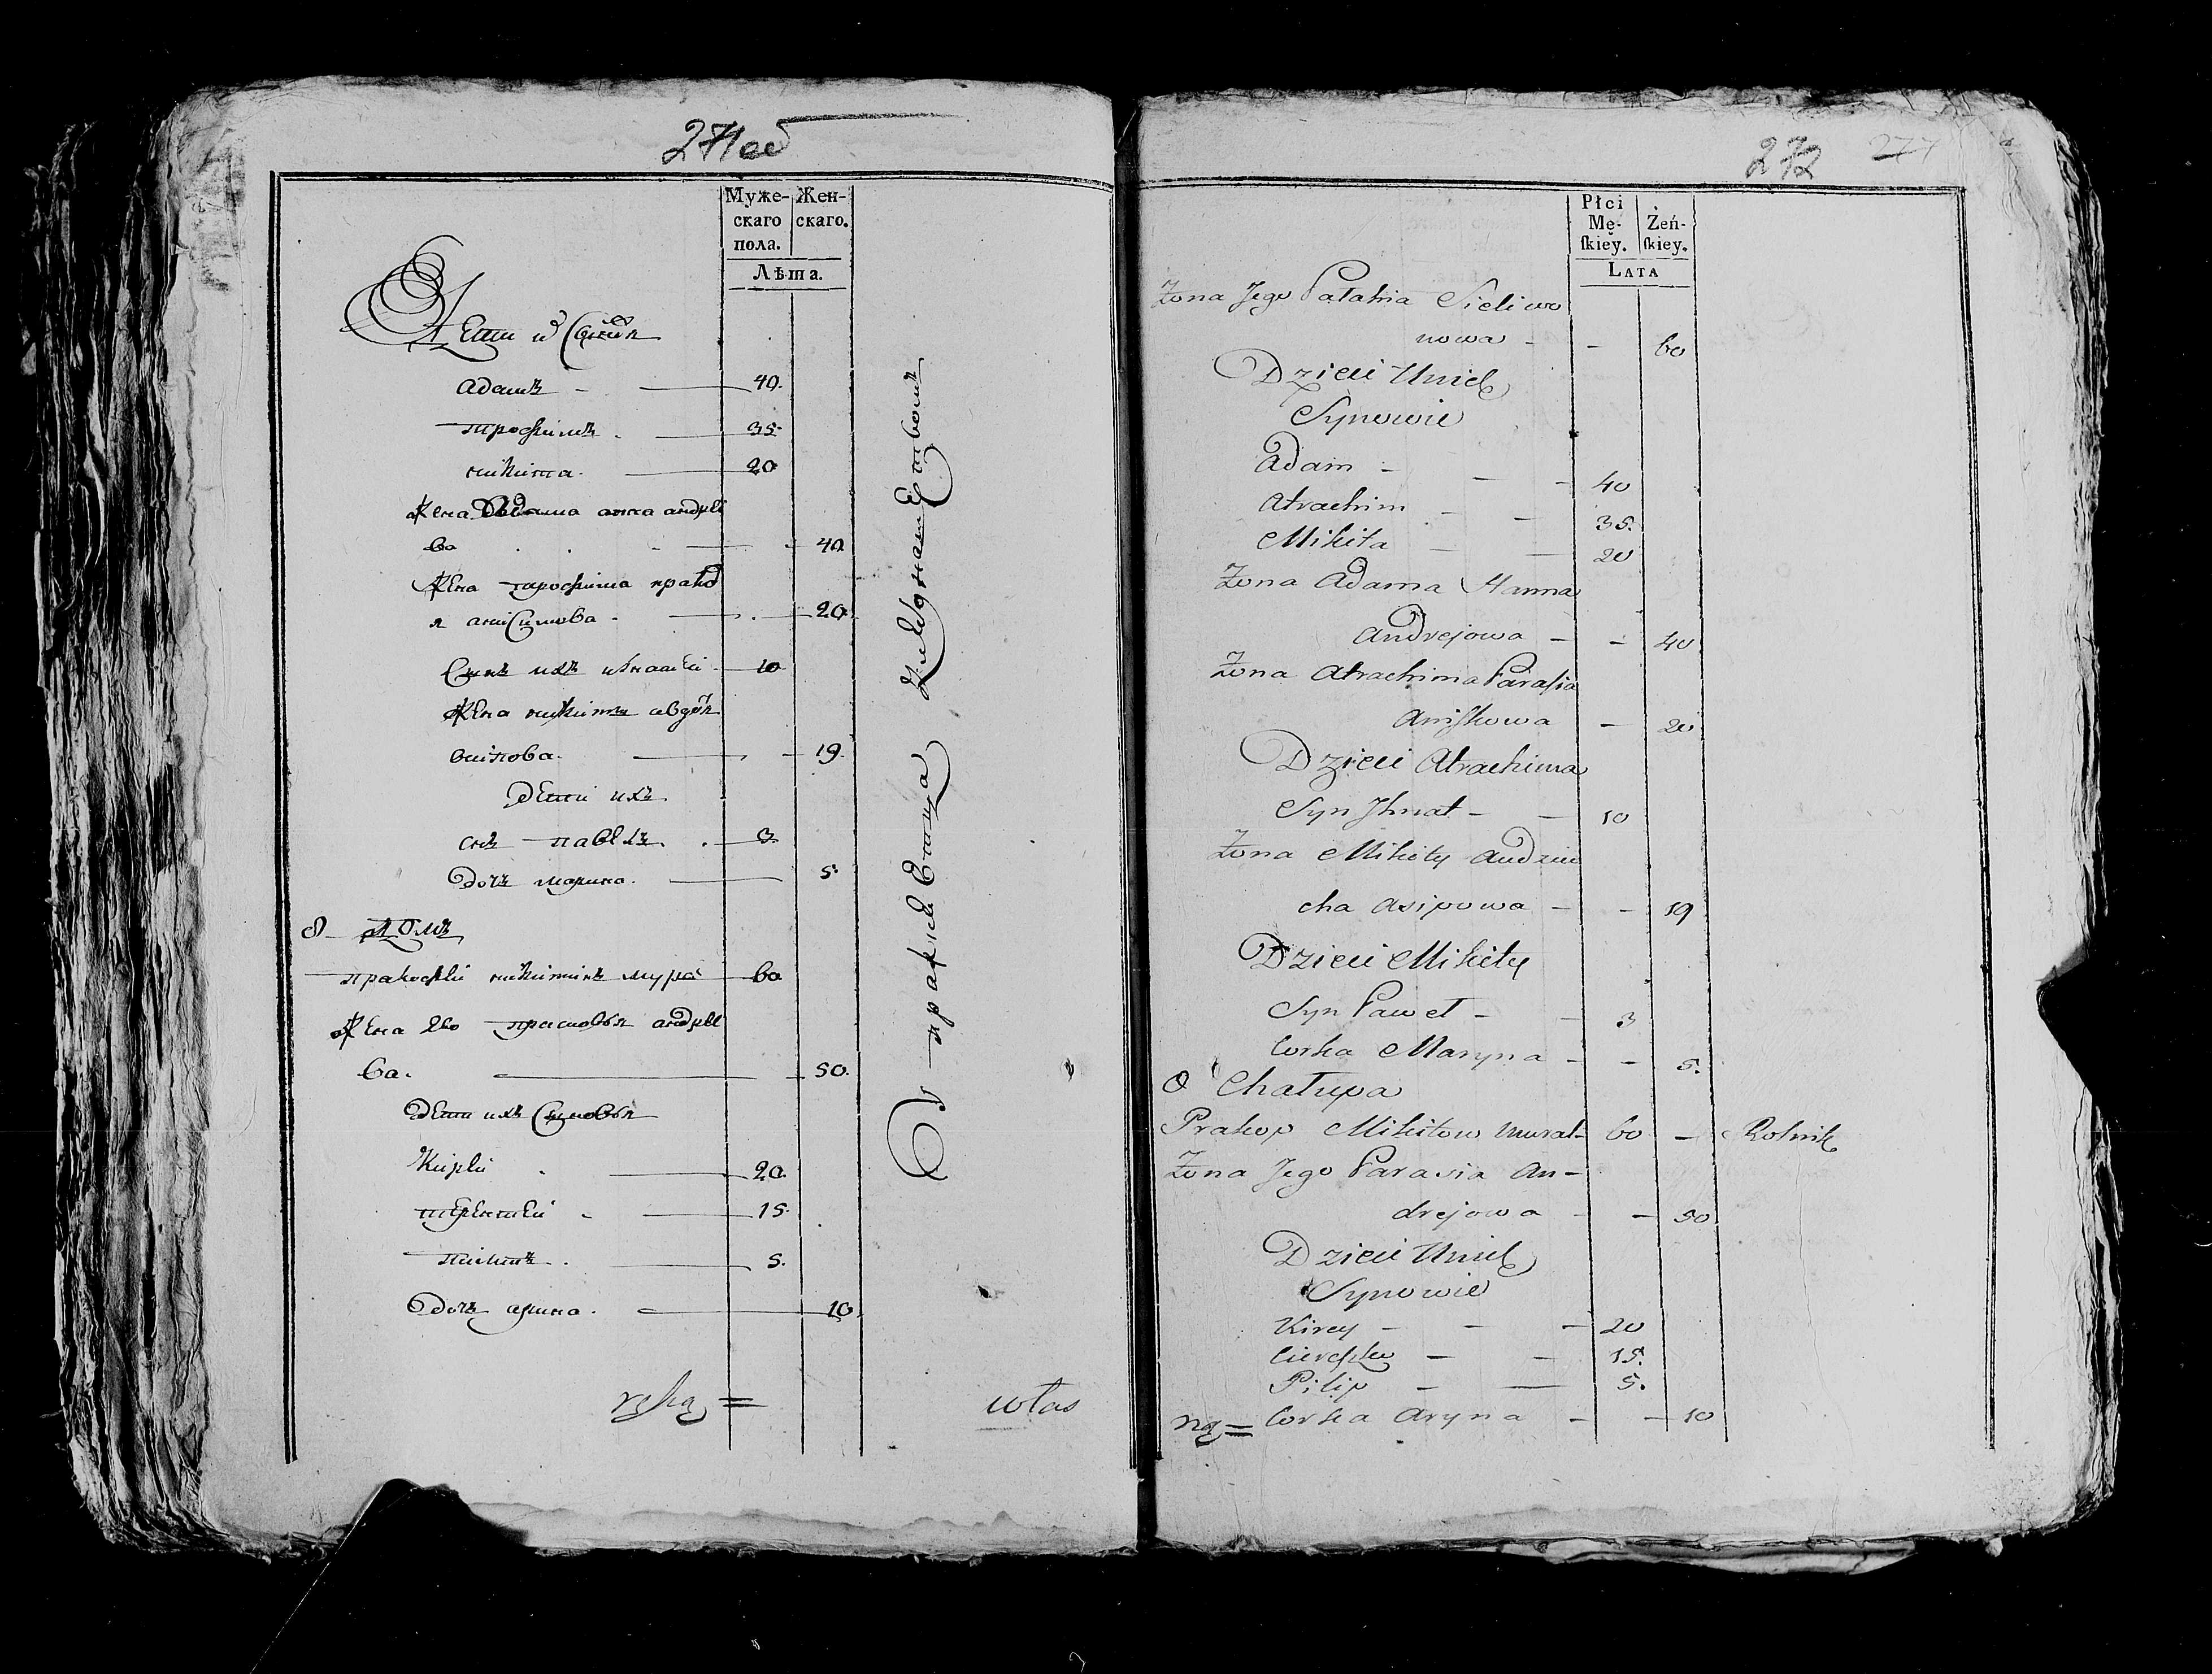 271 об
Муже-
скаго
пола.
Жен-
скаго.
Лѣта.
Дети
адамъ - 40.
трофимъ. 35.
никита. 20
Жена адама анна андрее
ва 40
Жена трофима
анисимова - 20.
Сынъ ихъ игнатеи 10
Жена никиты авдотя
осипова. 19.
дети ихъ
снъ павелъ. 3
дочъ марина. 5.
8 Домъ
пракофеи никитинъ 60
Жена ево прасковья андрее
ва. 50.
дети ихъ Сыновья
Кирѣи 20.
терентеи - 15.
пилипъ. 5.
дочъ арина. 10
ręką =
własna
272
277
Płci
Mę-
ſkiéy.
Żeń-
ſkiey.
LATA
Żona Jego Pałahia Sieliwo
nowa - - 60
Dzieci Unich
Synowie
Adam - - - 40
Atrachim - - 35.
Mikita - - 20
Żona Adama Hanna
Andrejowa - - 40
Żona Atrachima Parasia
Aniſkowa - 20
Dzieci Atrachima
Syn Ihnat - - 10
Żona Mikity Audziu
cha Asipowa - - 19
Dzieci Mikity
Syn Paweł - - 3
Corka Maryna - - 5.
8 Chałupa
Prakop Mikitow Murat- 60 - Rolnik
Żona Jego Parasia An-
drejowa - - 50
Dzieci Unich
Synowie
Kirey - - - 20
Ciereſzko - - 15.
Pilip - - 5.
ną = Corka Aryna - - 10